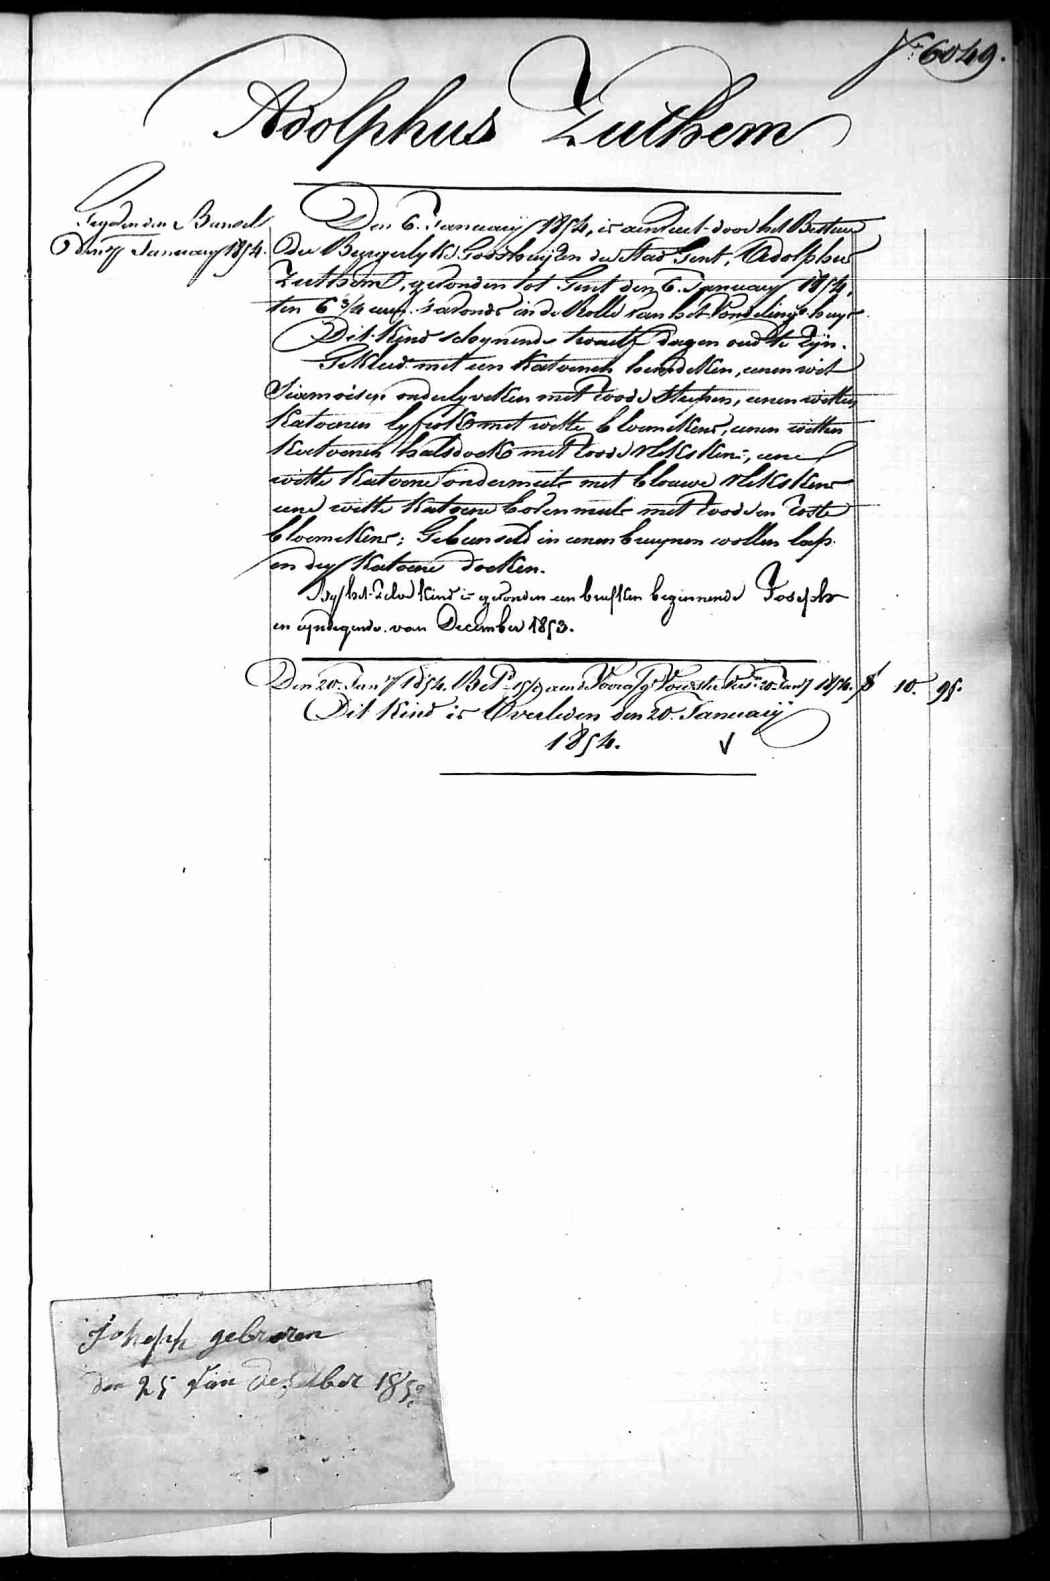 Nº 6049.
Adolphus Zuthem
Den 7 January 1854.
Den 6. January 1854, is door het Bestuur
Der Burgerlyke Godshuyzen der Stad Gent, Adolphus
Zuthem, gevonden tot Gent den 6. January 1854,
ten 6 3/4 uren 's avonds in de Rolle van het Vondelings huys.
Dit kind schynende twaelf dagen oud te zyn.
Gekleed met een katoenen hemdeken, eenen wit
Siamoisen onderlyveken met roode streepen, eenen witten
katoenen lyfrok met witte bloemekens, eenen witten
katoenen halsdoek met roode vlekskens, eene
witte katoene ondermuts met blauwe vlekskens
eene witte katoene bovenmuts met roode en roste
bloemekens; Gebunseld in eenen bruynen wollen lap
en dry katoene doeken.
By het zelve kind is gevonden een briefken beginnende Joseph
en eyndigende van December 1853.
Den 20. Jany 1854. 20. Jany 1854. 10. 95.
Dit kind is Overleden den 20. January
1854.
Joheph geboren
den 25 Van 185